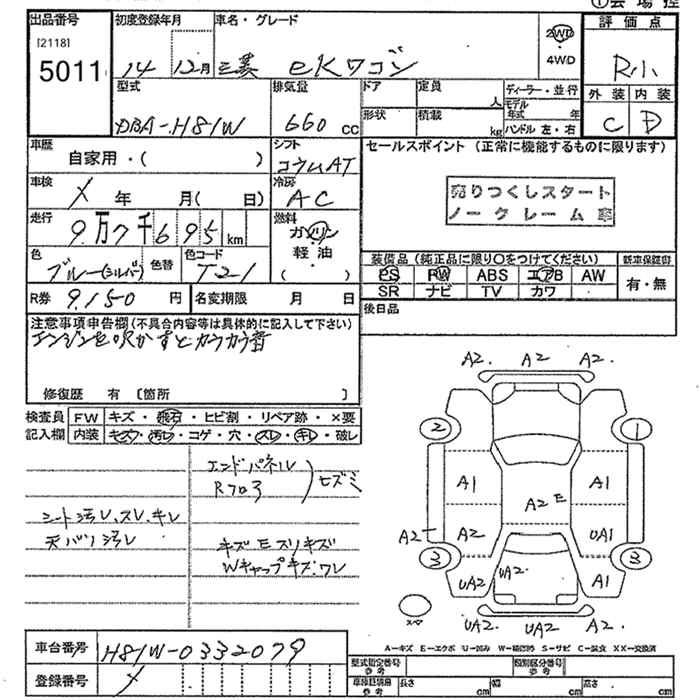 ①会場控
出品番号 初度登録年月 車名・グレード 評価点
[2118]
5011 14 12月 三菱 eKワゴン 2WD・4WD R小
型式 排気量 ドア 定員 人 ディーラー・並行 外装 内装
DBA-H81W 660 cc 形状 積載 kg モデル年式 年 ハンドル 左・右 C D
車歴 自家用・( ) シフト コラムAT
セールスポイント (正常に機能するものに限ります)
車検 X 年 月( 日) 冷房 AC
売りつくしスタート
ノークレーム車
走行 9万7千695km 燃料 ガソリン 軽油 ( )
色 ブルー(シルバ) 色替 色コード T21
装備品 (純正品に限り○をつけてください) 新車保証書
PS PW ABS エアB AW 有・無
SR ナビ TV カワ
R券 9.150 円 名変期限 月 日
後日品
注意事項申告欄(不具合内容等は具体的に記入して下さい)
エンジンを吹かすとカラカラ音
修復歴 有 〔箇所 〕
検査員 FW キズ・飛石・ヒビ割・リペア跡・×要
記入欄 内装 キズ・汚レ・コゲ・穴・スレ・キレ・破レ
エンドパネル
Rフロア ヒズミ
シート汚レ、スレ、キレ
天バリ汚レ
キズ E スリキズ
Wキャップキズ.ワレ
A2. A2 A2.
② ①
A1 A2 E A1
A2 A2 UA1
③ ③
UA2 UA2. A1
スペ
UA2 UA2 A2.
A-キズ E-エクボ U-凹み W-補修跡 S-サビ C-腐食 XX-交換済
車台番号 H81W-0332079
登録番号 X
型式指定番号 参考 類別区分番号 参考
車検証積用 参考 長さ cm 幅 cm 高さ cm